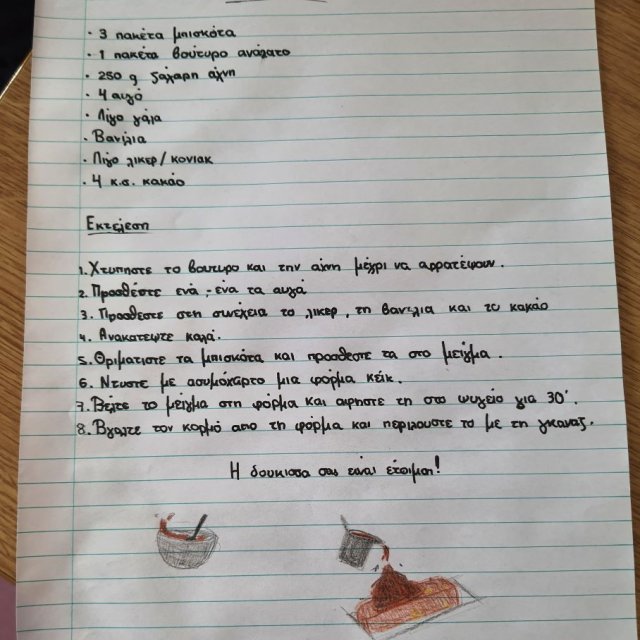 · 3 πακέτα μπισκότα
· 1 πακέτο βούτυρο ανάλατο
· 250 g ζάχαρη άχνη
· 4 αυγά
· Λίγο γάλα
· Βανίλια
· Λίγο λικερ / κονιακ
· 4 κ.σ. κακάο
Εκτέλεση
1. Χτυπηστε το βουτυρο και την αχνη μέχρι να αφρατέψουν.
2. Προσθέστε ενα - ένα τα αυγά
3. Προσθεστε στη συνέχεια το λικερ, τη βανιλια και το κακάο
4. Ανακατεψτε καλά.
5. Θριματιστε τα μπισκότα και προσθεστε τα στο μείγμα.
6. Ντυστε με ασυμόχαρτο μια φόρμα κέικ.
7. Βάλτε το μείγμα στη φόρμα και αφηστε τη στο ψυγείο για 30'.
8. Βγαλτε τον κορμό απο τη φόρμα και περιλουστε το με τη γκαναζ.
Η δουκισσα σας ειναι έτοιμη!